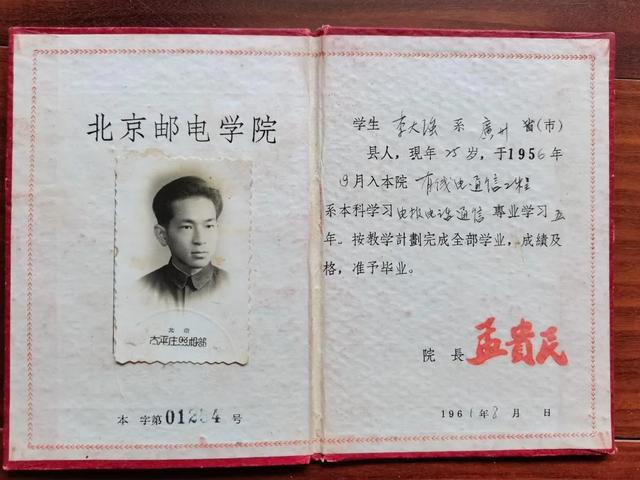 北京邮电学院
北京
太平庄照相部
本字第01254号
学生 李大强 系 廣州 省(市)
县人,現年25岁,于1956年
9月入本院 有线电通信工程
系本科学习 电报电话通信 專业学习 五
年。按教学計劃完成全部学业,成績及
格,准予毕业。
院長 孟貴民
1961年8月 日